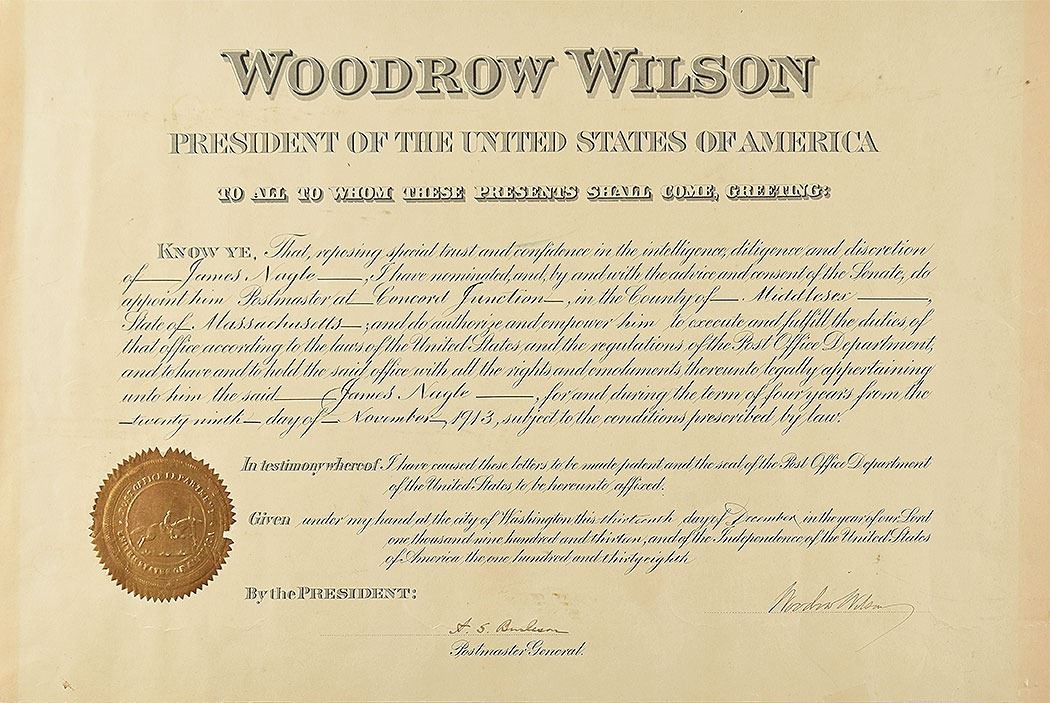 WOODROW WILSON
PRESIDENT OF THE UNITED STATES OF AMERICA
TO ALL TO WHOM THESE PRESENTS SHALL COME, GREETING:
KNOW YE, That, reposing special trust and confidence in the intelligence, diligence and discretion
of James Nagle, I have nominated, and, by and with the advice and consent of the Senate, do
appoint him Postmaster at Concord Junction, in the County of Middlesex,
State of Massachusetts; and do authorize and empower him to execute and fulfill the duties of
that office according to the laws of the United States and the regulations of the Post Office Department,
and to have and to hold the said office with all the rights and emoluments thereunto legally appertaining
unto him the said James Nagle, for and during the term of four years from the
twenty ninth day of November, 1913, subject to the conditions prescribed by law.
In testimony whereof I have caused these letters to be made patent and the seal of the Post Office Department
of the United States to be hereunto affixed.
Given under my hand at the city of Washington this thirteenth day of December, in the year of our Lord
one thousand nine hundred and thirteen, and of the Independence of the United States
of America the one hundred and thirty eighth
By the PRESIDENT:
Woodrow Wilson
A. S. Burleson
Postmaster General.
POST OFFICE DEPARTMENT
UNITED STATES OF AMERICA